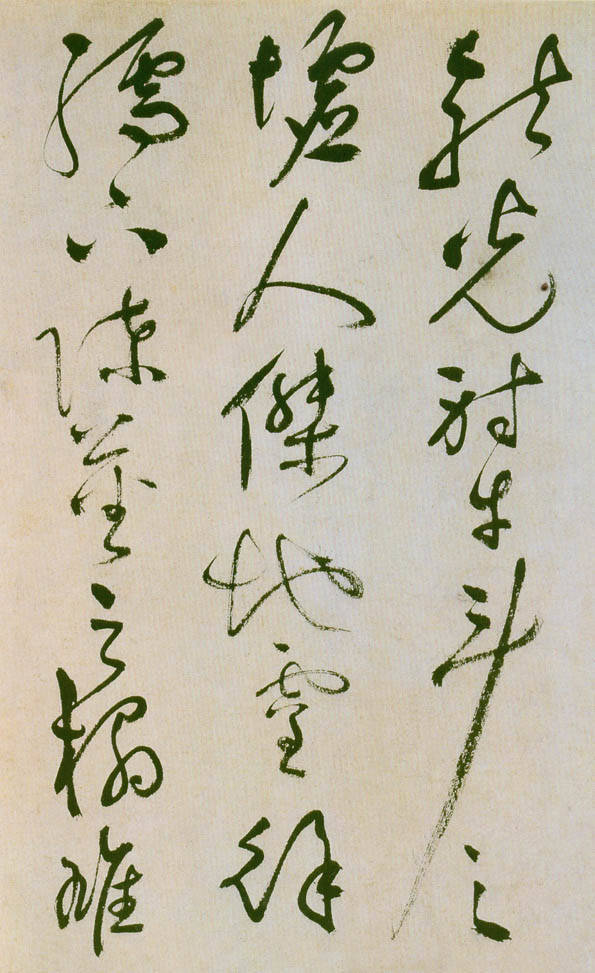 龍光射牛斗之
墟人傑地靈徐
孺下陳蕃之榻雄